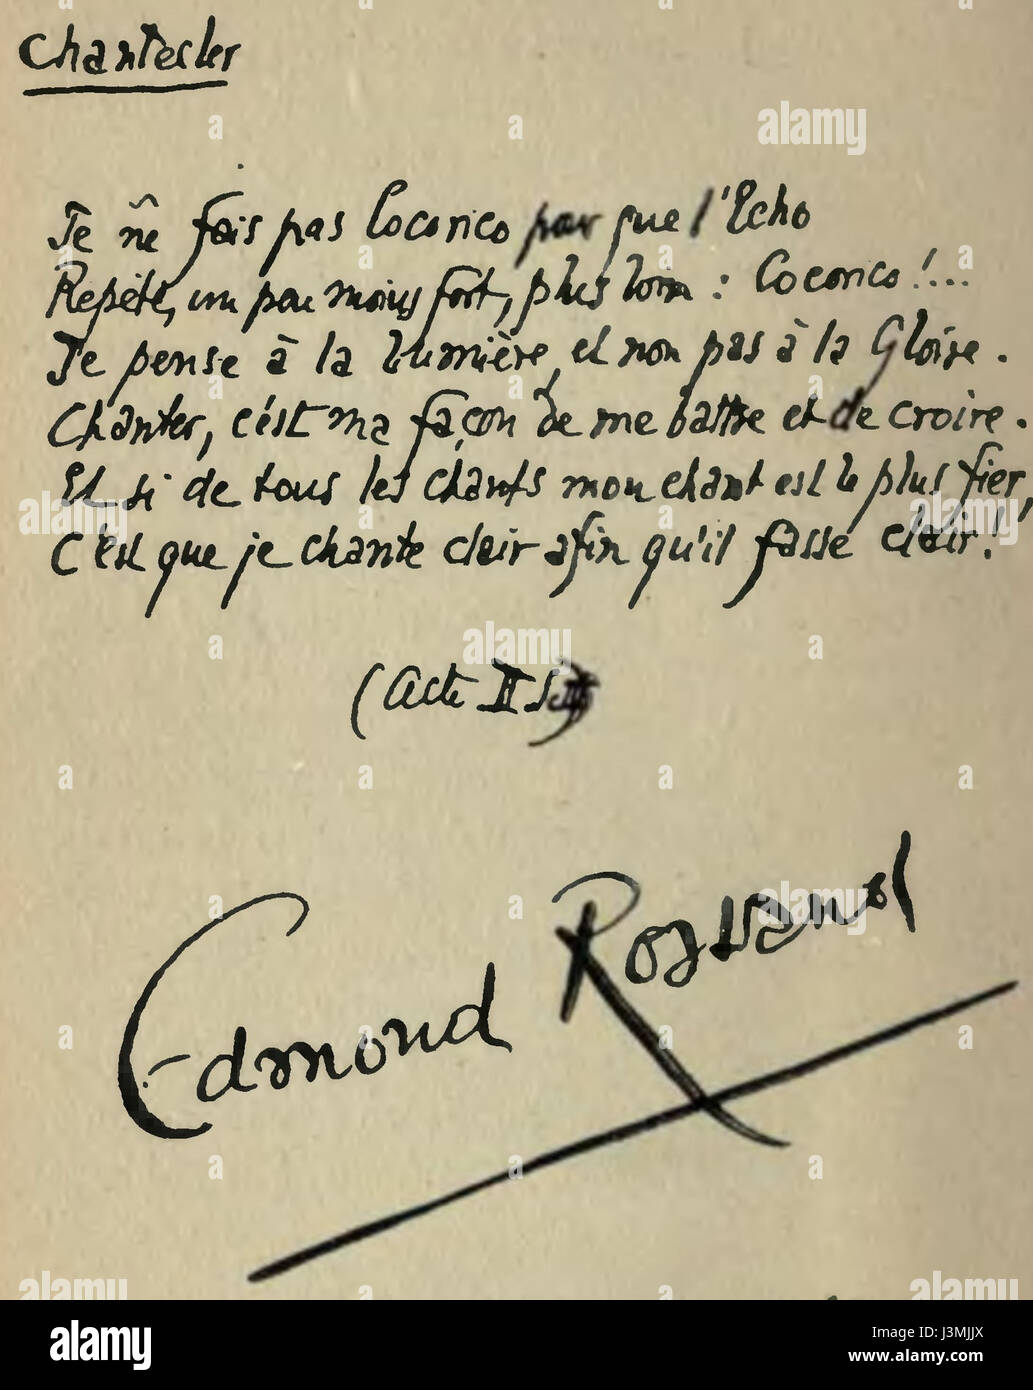 Chantecler
Je ne fais pas Cocorico pour que l'Echo
Repète, un peu moins fort, plus loin : Cocorico !...
Je pense à la lumière, et non pas à la Gloire.
Chanter, c'est ma façon de me battre et de croire.
Et si de tous les chants mon chant est le plus fier,
C'est que je chante clair afin qu'il fasse clair !
(Acte II
Edmond Rostand
a alamy stock photo
Image ID: J3MJJX
www.alamy.com